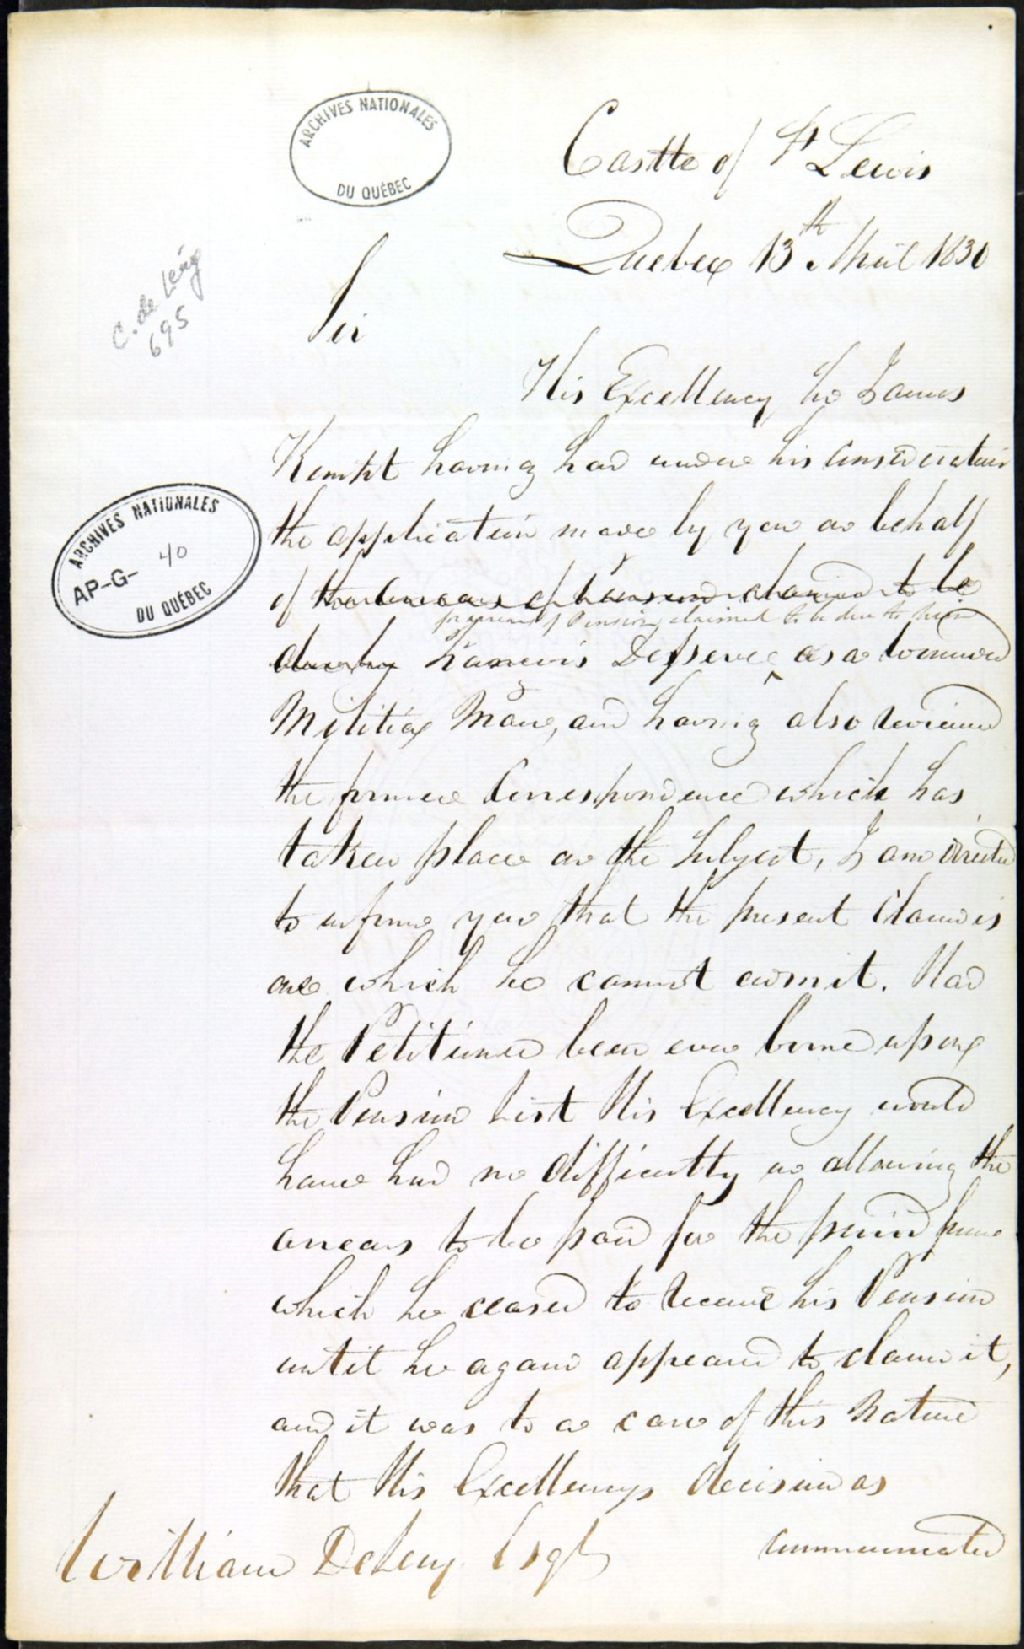 ARCHIVES NATIONALES
DU QUÉBEC
Castle of St Lewis
Quebec 13th April 1830
C. de Léry
695
Sir
His Excellency Sir James
Kempt having had under his consideration
the application made by you on behalf
of the arrears of Pension claimed to be
for arrears of Pension claimed to be due to him
due by Francois as a wounded
Militia Man, and having also reviewed
the former Correspondence which has
taken place on the Subject, I am directed
to inform you that the present Claim is
one which he cannot admit. Had
the Petitioner been ever borne upon
the Pension List His Excellency would
have had no difficulty in allowing the
arrears to be paid for the period from
which he ceased to receive his Pension
until he again appeared to claim it,
and it was to a case of this Nature
that His Excellencys decision as
communicated
William DeLery Esqr
ARCHIVES NATIONALES
AP-G- 40
DU QUÉBEC